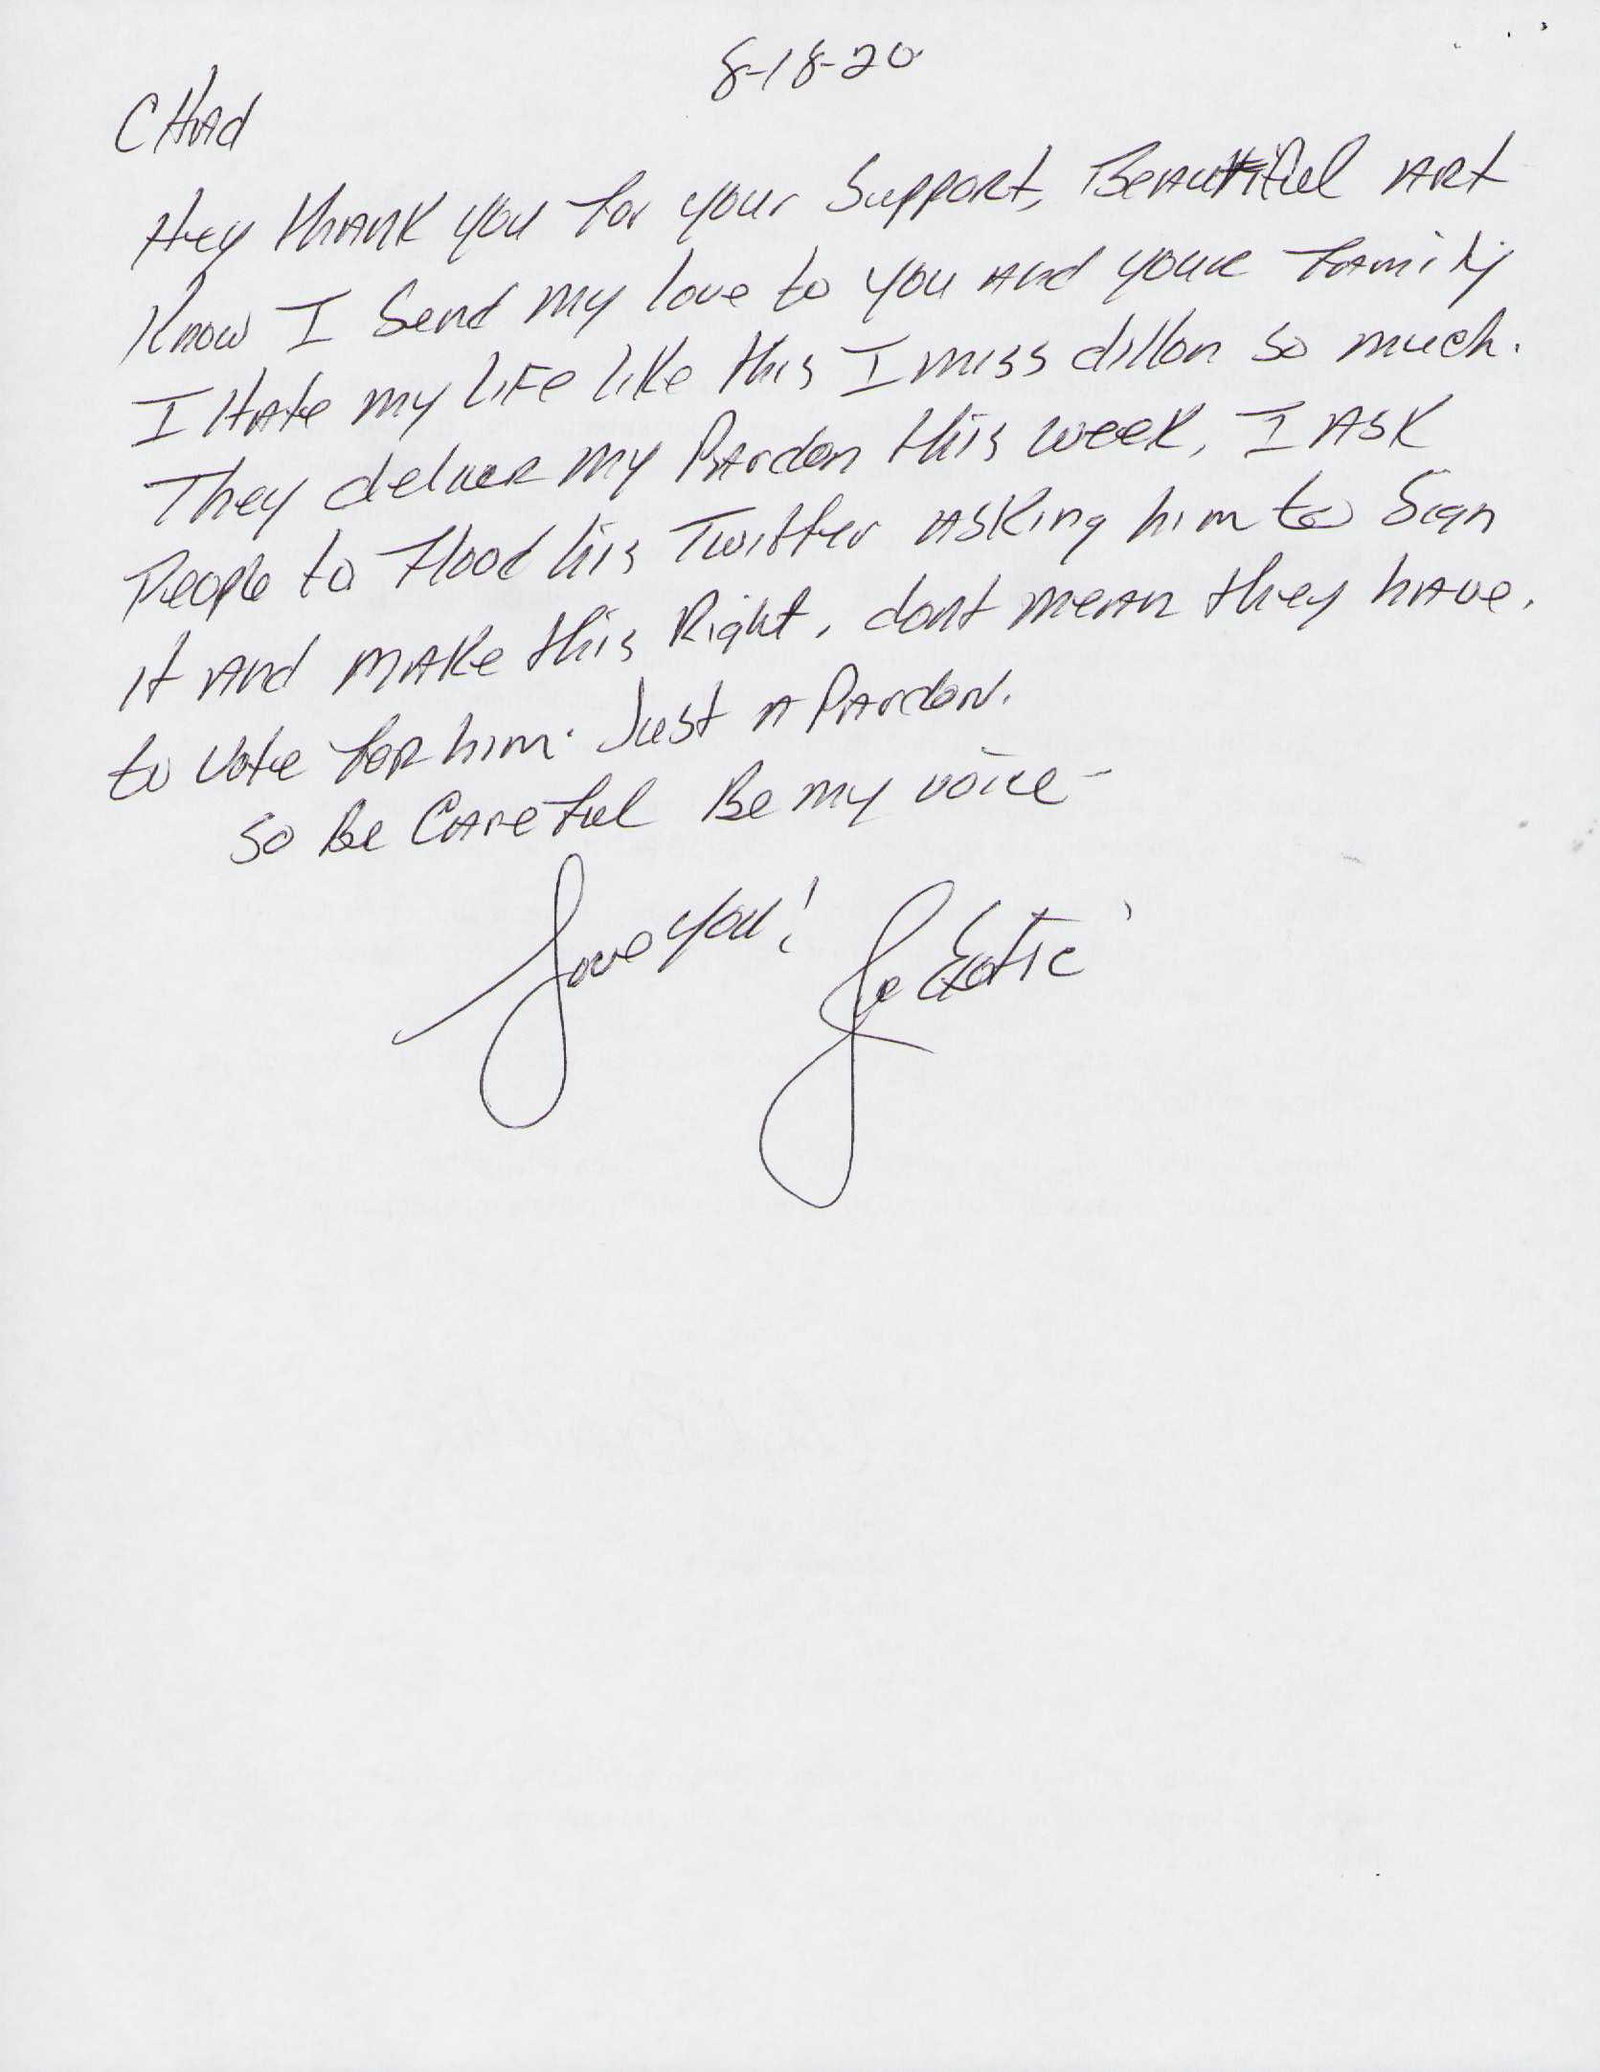 8-18-20
CHad
Hey thank you for your Support, Beautiful Art
Know I Send my love to you and your family
I Hate my life like this I miss dillon so much.
They deliver my Pardon this week, I ASK
People to flood his Twitter asking him to Sign
it and make this Right, dont mean they have,
to vote for him. Just a Pardon.
So Be Careful Be my voice-
Love you! Joe Exotic